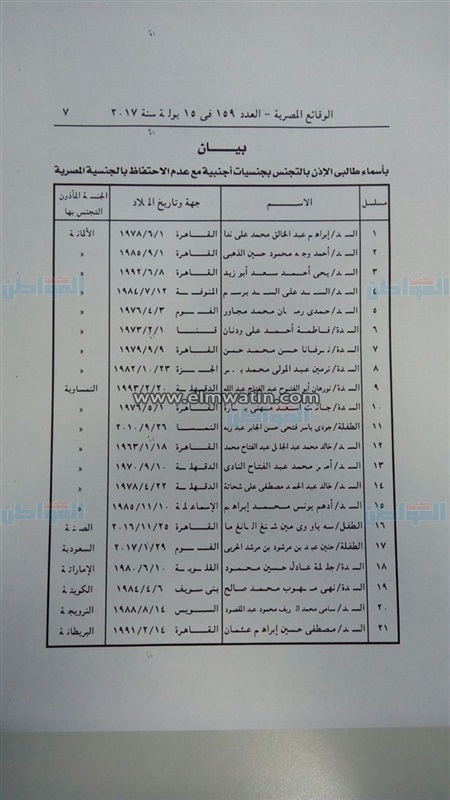 الوقائع المصرية - العدد ١٥٩ فى ١٥ يولية سنة ٢٠١٧ ٧
بيــان
بأسماء طالبى الإذن بالتجنس بجنسيات أجنبية مع عدم الاحتفاظ بالجنسية المصرية
مسلسل الاســـم جهة وتاريخ الميلاد الجنسية المأذون التجنس بها
١ السيد/ إبراهيم عبد الخالق محمد على ندا القاهرة ١٩٧٨/٦/١ الألمانية
٢ السيد/ أحمد وجيه محمود حسين الذهبى القاهرة ١٩٨٥/٩/١ »
٣ السيد/ يحى أحمد سعد أبو زيد القاهرة ١٩٩٢/٦/٨ »
٤ السيد/ على السيد المنوفية ١٩٨٤/٧/١٢ »
٥ السيد/ حمدى رمضان محمد مجاور الفيوم ١٩٧٦/٤/٣ »
٦ السيدة/ فاطمة أحمد على ودنان قنا ١٩٧٣/٢/١ »
٧ السيدة/ نرفانا حسن محمد حسن القاهرة ١٩٧٩/٩/٩ »
٨ السيدة/ نرمين عبد المولى محمد الجيزة ١٩٨٢/١٠/٢٣ »
٩ السيدة/ نورهان أبو الفتوح عبد الفتاح عبد الله الدقهلية ١٩٩٣/٢/٢٠ النمساوية
١٠ السيدة/ القاهرة ١٩٧٦/٥/١ »
١١ الطفلة/ جودى ياسر فتحى حسن الجابر عبد ربه النمسا ٢٠١٠/٩/٢٦ »
١٢ السيد/ خالد محمد عبد الجليل عبد الفتاح محمد القاهرة ١٩٦٣/١/١٨ »
١٣ السيد/ محمد عبد الفتاح النادى الدقهلية ١٩٧٠/٩/١٠ »
١٤ السيد/ خالد عبد الحميد مصطفى على شحاتة الدقهلية ١٩٧٨/٤/٢٢ »
١٥ السيد/ أدهم يونس محمد إبراهيم الإسماعيلية ١٩٨٥/١١/١٠ »
١٦ الطفل/ القاهرة ٢٠١٦/١١/٢٥ الصينية
١٧ الطفلة/ حنين بن مرشود بن مرشد الحربى الفيوم ٢٠١٧/١/٢٩ السعودية
١٨ السيدة/ عادل حسين محمود القليوبية ١٩٨٠/٦/١٠ الإماراتية
١٩ السيدة/ نهى محمد صالح بنى سويف ١٩٨٤/٤/٦ الكويتية
٢٠ السيد/ سامى محمد محمود عبد المقصود السويس ١٩٨٨/٨/١٤ النرويجية
٢١ السيد/ مصطفى حسين إبراهيم عثمان القاهرة ١٩٩١/٢/١٤ البريطانية
www.elmwatin.com
المواطن